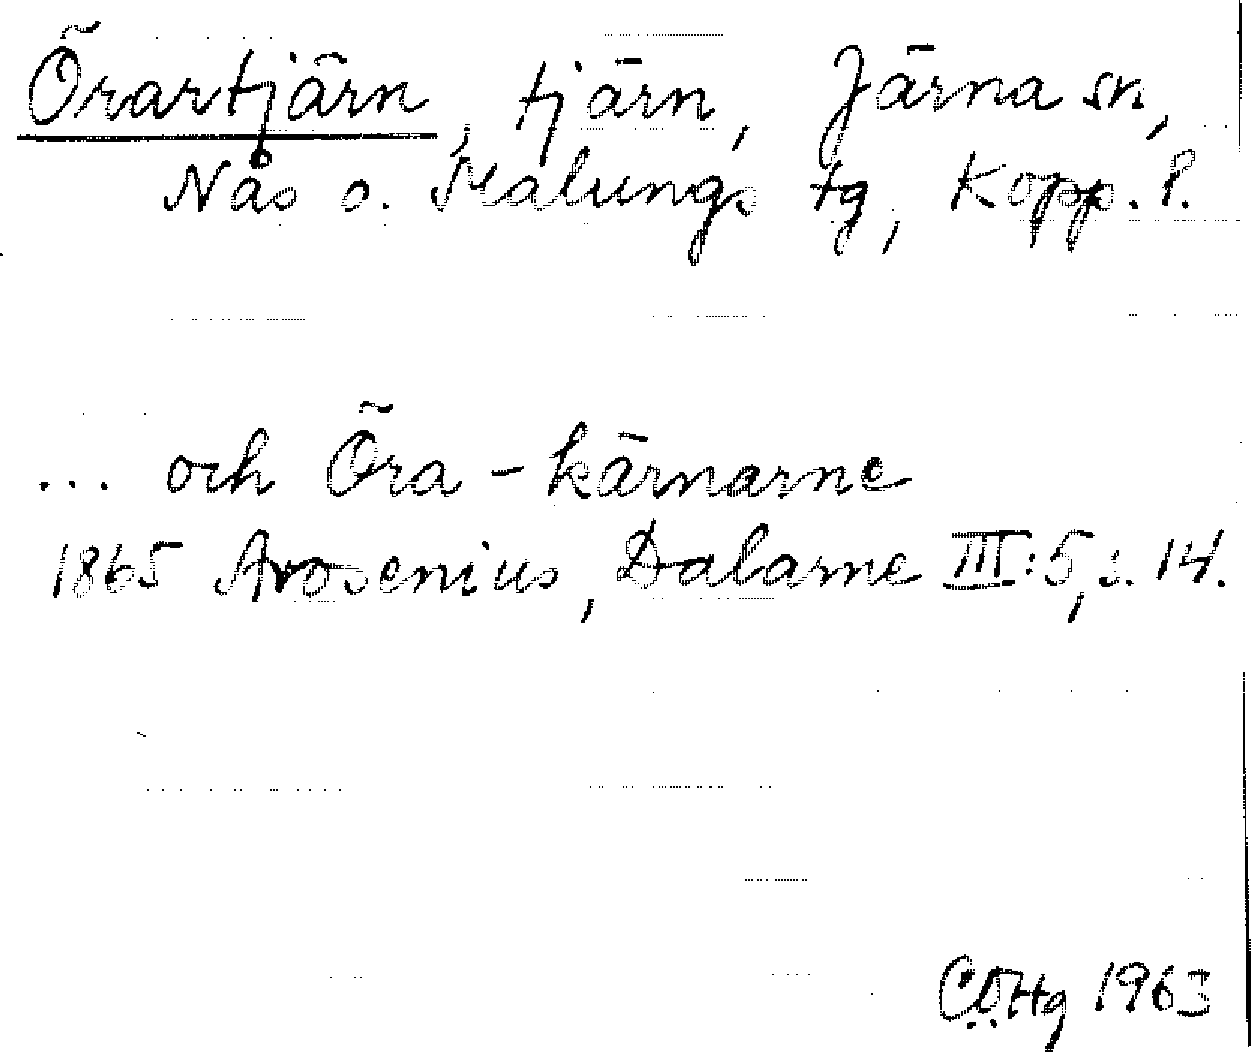 Örartjärn, tjärn, Järna sn,
Nås o. Malungs tg, Kopp. l.
... och Öra-kärnarne
1865 Arosenius, Dalarne III:5, s. 14.
CÖHg 1963